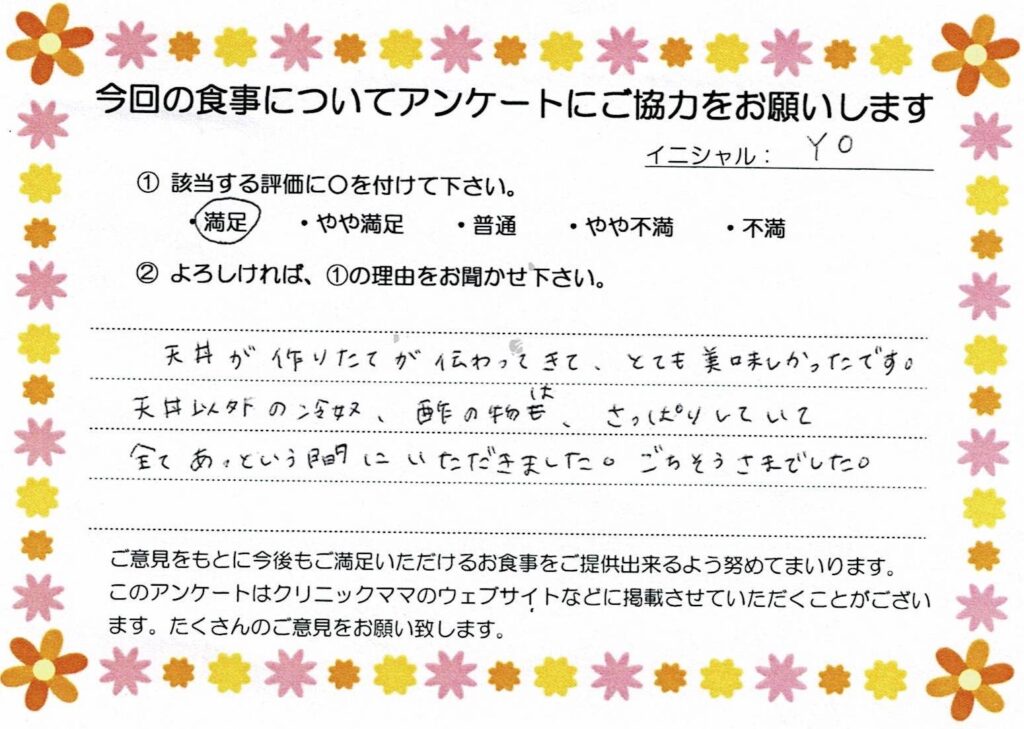 今回の食事についてアンケートにご協力をお願いします
イニシャル： YO
① 該当する評価に〇を付けて下さい。
・満足 ・やや満足 ・普通 ・やや不満 ・不満
② よろしければ、①の理由をお聞かせ下さい。
天丼が作りたてが伝わってきて、とても美味しかったです。
天丼以外の冷奴、酢の物は、さっぱりしていて
全てあっという間にいただきました。ごちそうさまでした。
ご意見をもとに今後もご満足いただけるお食事をご提供出来るよう努めてまいります。
このアンケートはクリニックママのウェブサイトなどに掲載させていただくことがござい
ます。たくさんのご意見をお願い致します。